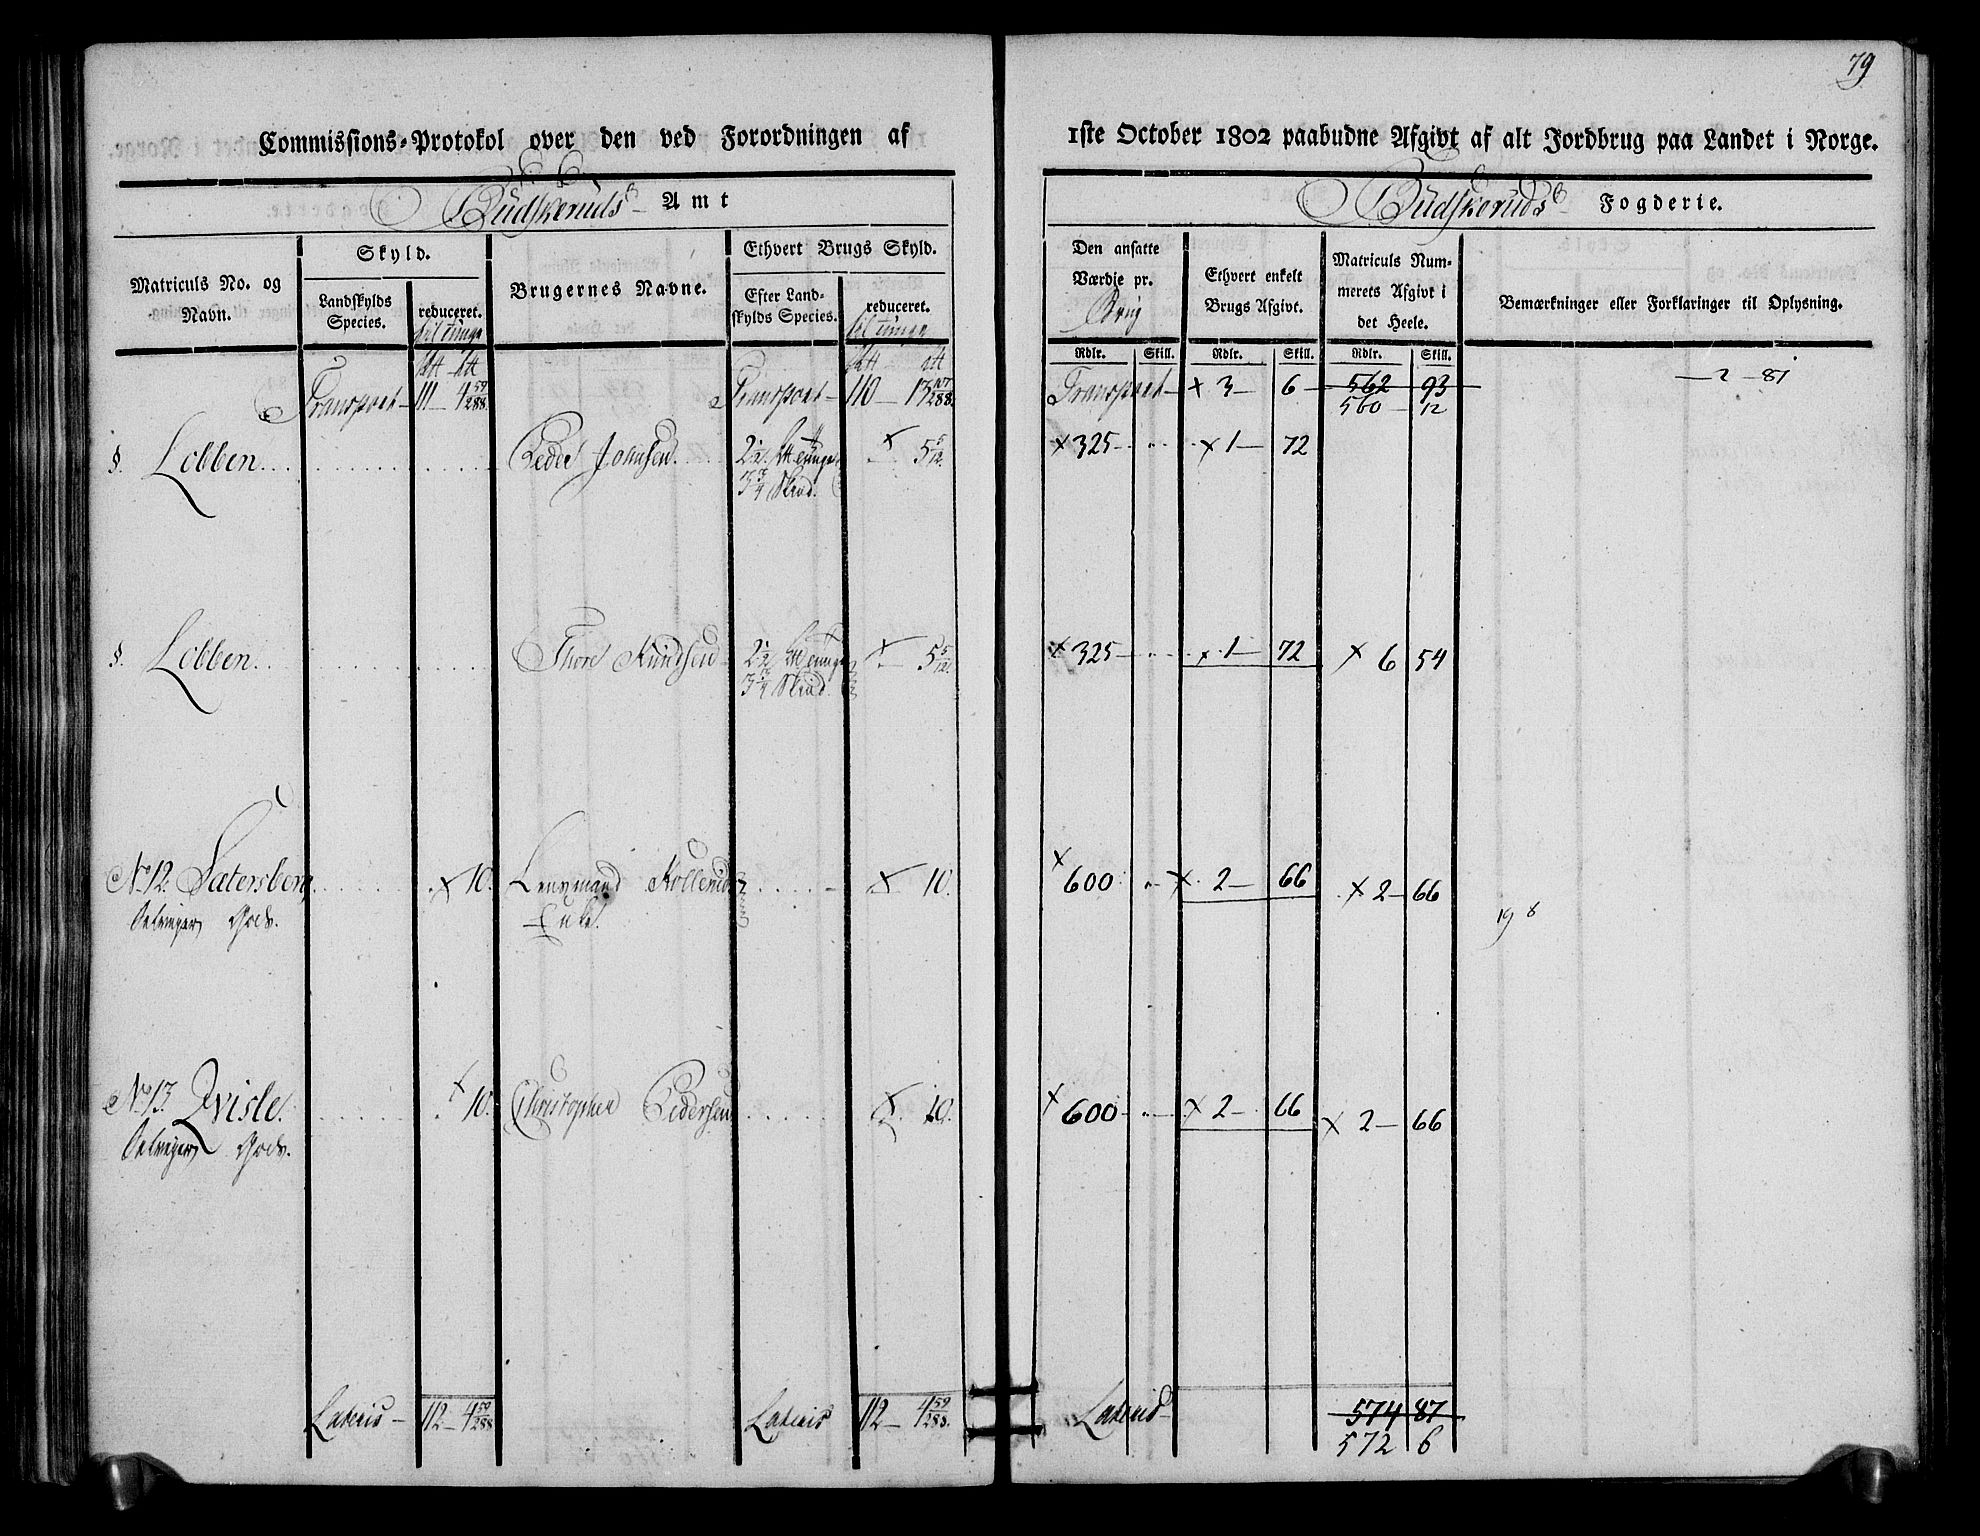 79
Commissions-Protokol over den ved Forordningen af 1ste October 1802 paabudne Afgivt af alt Jordbrug paa Landet i Norge.
Budskeruds Amt
Budskeruds Fogderie.
Matriculs No. og Navn.
Skyld.
Landskylds Species.
reduceret. til tunge
Brugernes Navne.
Ethvert Brugs Skyld.
Efter Landskylds Species.
reduceret. til tunge
Den ansatte Værdie pr. Brug
Ethvert enkelt Brugs Afgivt.
Matriculs Nummerets Afgivt i det Heele.
Bemærkninger eller Forklaringer til Oplysning.
Rdlr. Skill. Rdlr. Skill. Rdlr. Skill.
Transport – 111 – 4 59/288 Transport – 110 – 17 107/288 Transport – x 3 – 6 – 562 93 – 2 – 81
560 – 12
§. Lobben Peder Johnsen 2 1/2 tunge x 5 5/12. x 325 – x 1 – 72
3 3/4 Skind.
§. Lobben Thore Knudsen 2 1/2 tunge x 5 5/12. x 325 – x 1 – 72 x 6 54
3 3/4 Skind.
No 12. Sætersberg x 10. Kollerud x 10. x 600 x 2 – 66 x 2 – 66
Selveyer Gods. Enke. 19 8
No 13. Qvisle. x 10. Christopher Pedersen x 10. x 600 – x 2 – 66 x 2 – 66
Selveyer Gods.
Lateris – 112 – 4 59/288 Lateris 112 – 4 59/288. Lateris – 574 87
572 6